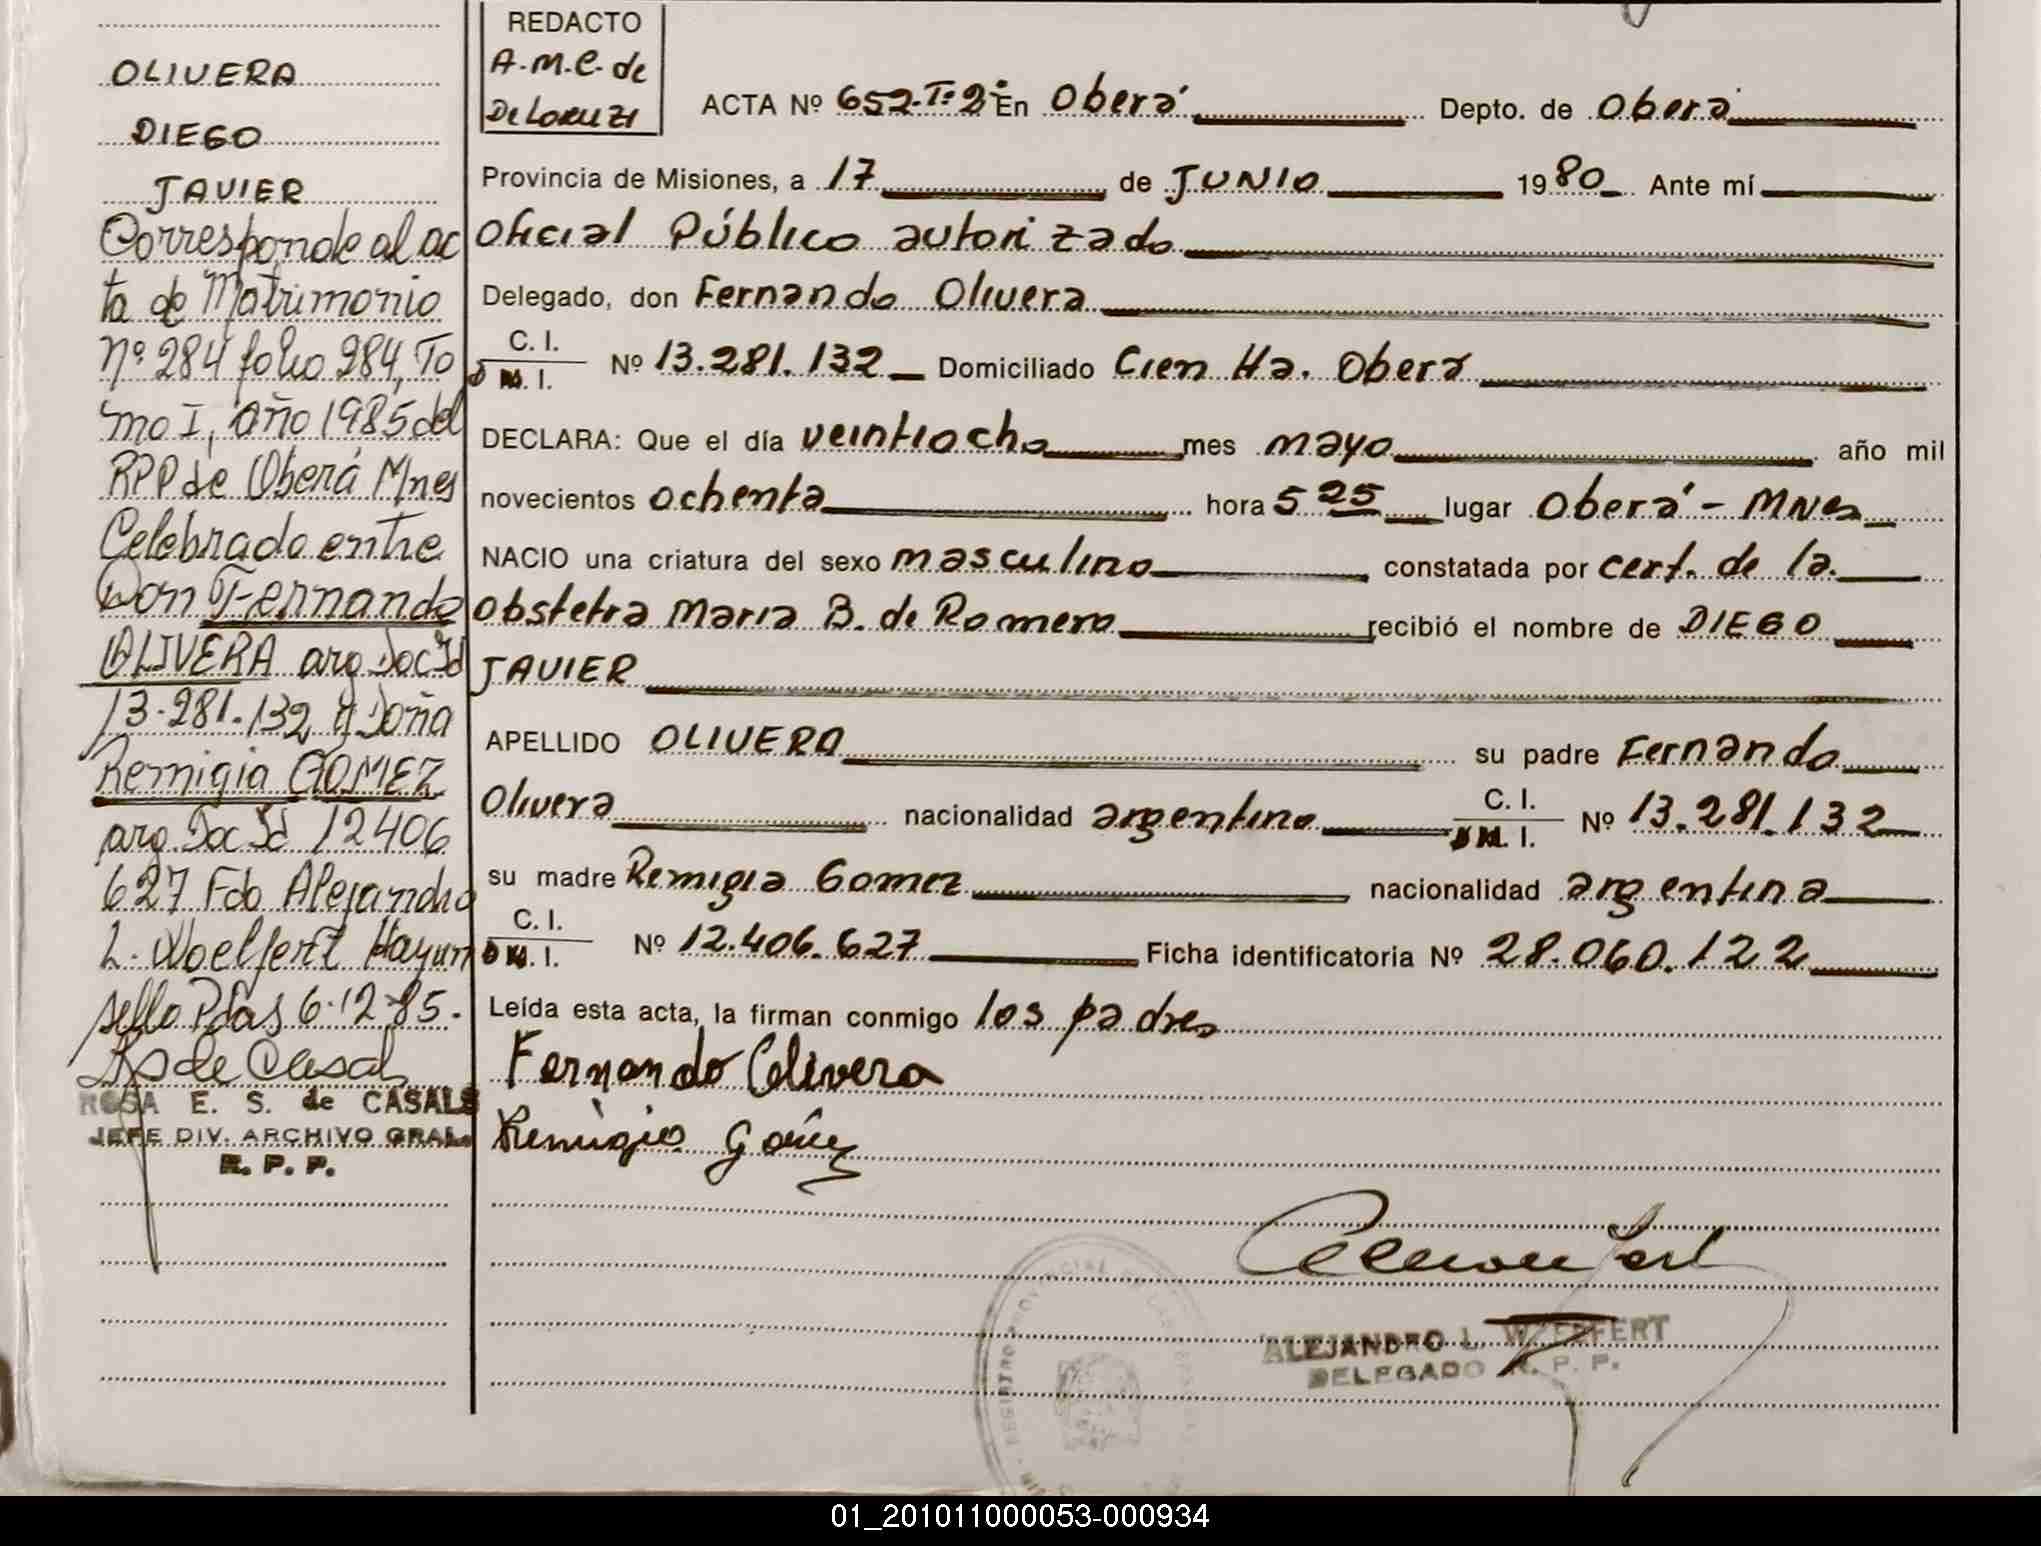 OLIVERA
DIEGO
JAVIER
Corresponde al ac
ta de Matrimonio
Nº 284 folio 284, To
mo I, año 1985 del
RPP de Oberá Mnes
Celebrado entre
Don Fernando
OLIVERA arg Doc Id
13.281.132 y Doña
Remigia GOMEZ
arg. Doc Id 12406
627 Fdo Alejandro
L. Woelfert Hay un
sello Pdas 6-12-85.
ROSA E. S. de CASALS
JEFE DIV. ARCHIVO GRAL.
R. P. P.
REDACTO
A.M.C. de
De Loruzi
ACTA Nº 652-Tº 2º En Oberá Depto. de Oberá
Provincia de Misiones, a 17 de JUNIO 1980 Ante mí
Oficial Público autorizado
Delegado, don Fernando Olivera
C. I.
M. I. Nº 13.281.132 Domiciliado Cien Ha. Oberá
DECLARA: Que el día veintiocho mes mayo año mil
novecientos ochenta hora 5 25 lugar Oberá - MNes
NACIO una criatura del sexo masculino constatada por cert. de la
Obstetra Maria B. de Romero recibió el nombre de DIEGO
JAVIER
APELLIDO OLIVERA su padre Fernando
Olivera nacionalidad argentino C. I. M. I. Nº 13.281.132
su madre Remigia Gomez nacionalidad argentina
C. I.
M. I. Nº 12.406.627 Ficha identificatoria Nº 28.060.122
Leída esta acta, la firman conmigo los padres
Fernando Olivera
Remigia Gómez
ALEJANDRO L. WOELFERT
DELEGADO R. P. P.
01_201011000053-000934